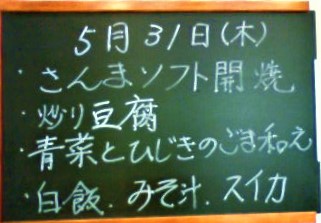 5月31日(木)
・さんまソフト開焼
・炒り豆腐
・青菜とひじきのごま和え
・白飯.みそ汁.スイカ